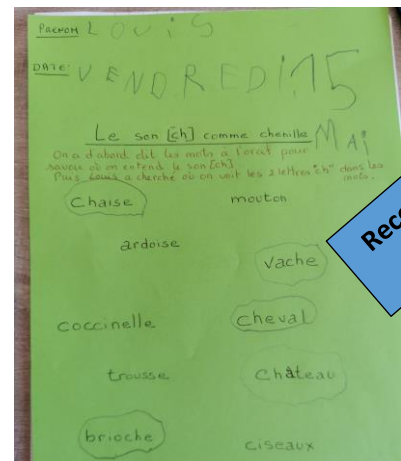 PRENOM LOUIS
DATE: VENDREDI 15
MAI
Le son [ch] comme chenille
On a d'abord dit les mots à l'oral pour
savoir où on entend le son [ch].
Puis a cherché où on voit les 2 lettres "ch" dans les
mots.
Chaise mouton
ardoise
Vache
coccinelle cheval
trousse Château
brioche ciseaux
Reco